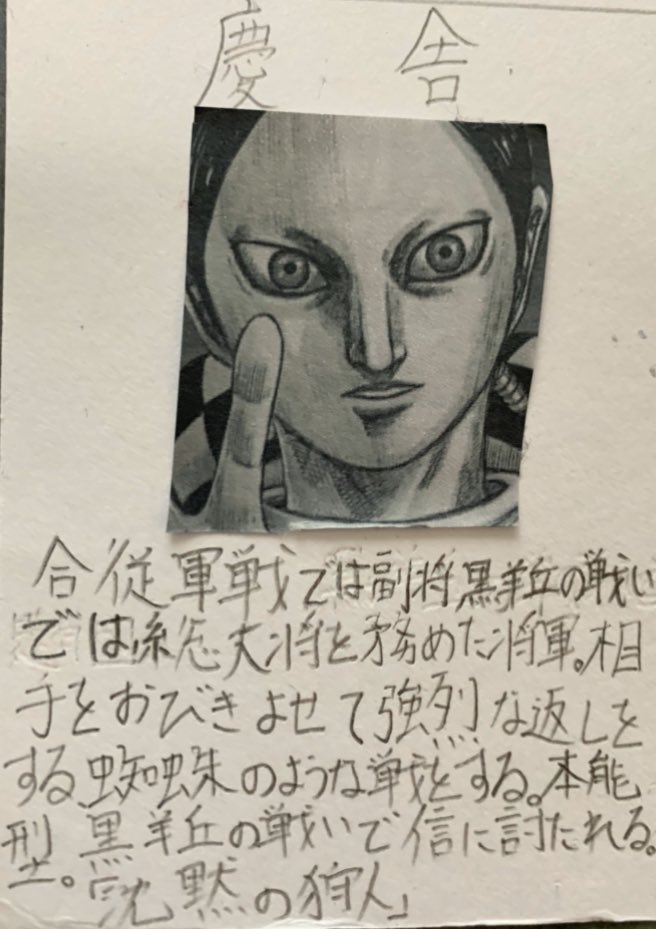 慶舎
合従軍戦では副将黒羊丘の戦い
では総大将を務めた将軍。相
手をおびきよせて強烈な返しを
する蜘蛛のような戦をする。本能
型。黒羊丘の戦いで信に討たれる。
「沈黙の狩人」